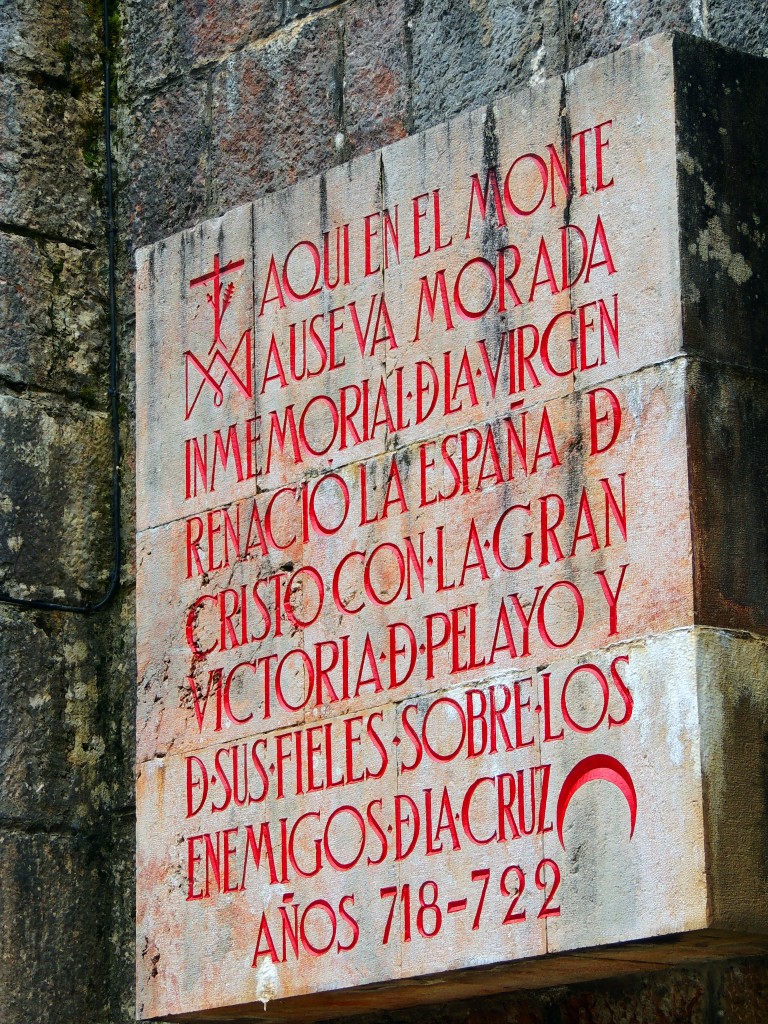 AQUI EN EL MONTE
AUSEVA MORADA
INMEMORIAL·Đ·LA·VIRGEN
RENACIO LA ESPAÑA Đ
CRISTO CON·LA·GRAN
VICTORIA·Đ·PELAYO Y
Đ·SUS·FIELES·SOBRE·LOS
ENEMIGOS·ĐLA·CRUZ
AÑOS 718-722